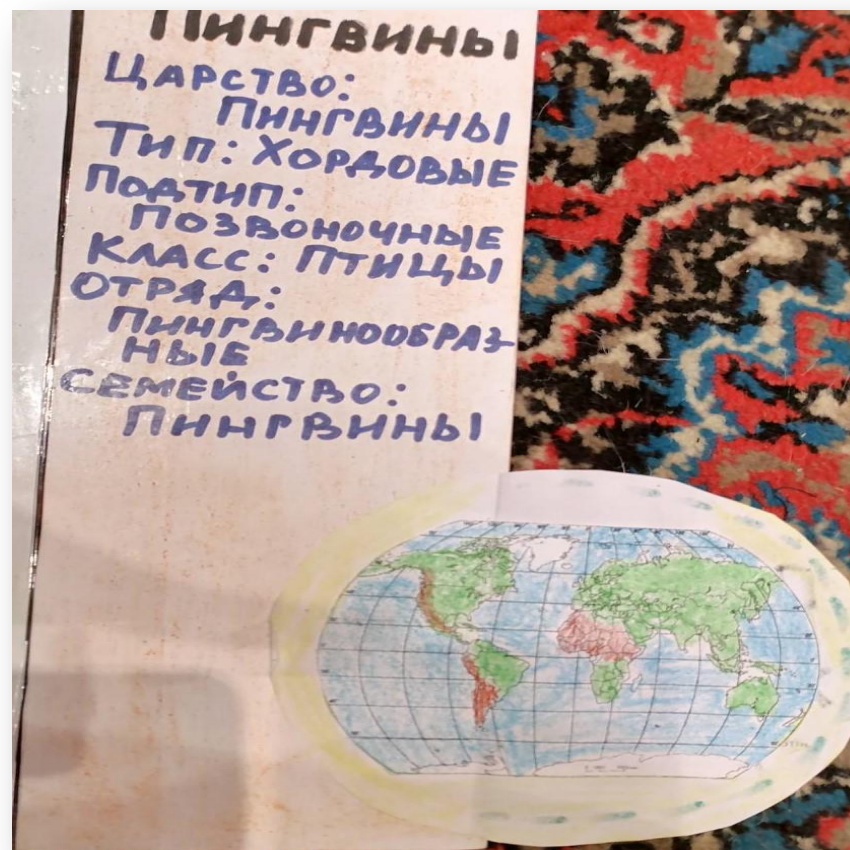 Пингвины
Царство:
Пингвины
Тип: Хордовые
Подтип:
Позвоночные
Класс: Птицы
Отряд:
Пингвинообраз-
ные
Семейство:
Пингвины